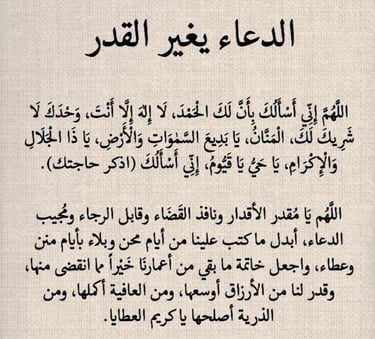 الدعاء يغير القدر
اللَّهُمَّ إِنِّي أَسْأَلُكَ بِأَنَّ لَكَ الْحَمْدَ، لَا إِلَهَ إِلَّا أَنْتَ، وَحْدَكَ لَا
شَرِيكَ لَكَ، الْمَنَّانُ، يَا بَدِيعَ السَّمَوَاتِ وَالْأَرْضِ، يَا ذَا الْجَلَالِ
وَالْإِكْرَامِ، يَا حَيُّ يَا قَيُّومُ، إِنِّي أَسْأَلُكَ (اذكر حاجتك).
اللَّهُم يَا مُقدر الأقدار ونافذ القَضَاء وقابل الرجاء ومُجيب
الدعاء، أبدل ما كتب علينا من أيام محن وبلاء بأيام منن
وعطاء، واجعل خاتمة ما بقي من أعمارنَا خَيْراً مما انقضى منها،
وقدر لنا من الأرزاق أوسعها، ومن العافية أكملها، ومن
الذرية أصلحها يا كريم العطايا.